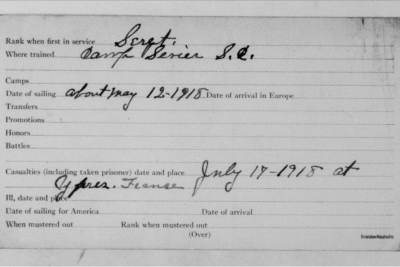 Rank when first in service Sergt.
Where trained Camp Sevier S.C.
Camps
Date of sailing about May 12-1918 Date of arrival in Europe
Transfers
Promotions
Honors
Battles
Casualties (including taken prisoner) date and place July 17-1918 at
Yprez. Franse
Ill, date and place
Date of sailing for America Date of arrival
When mustered out Rank when mustered out
(Over)